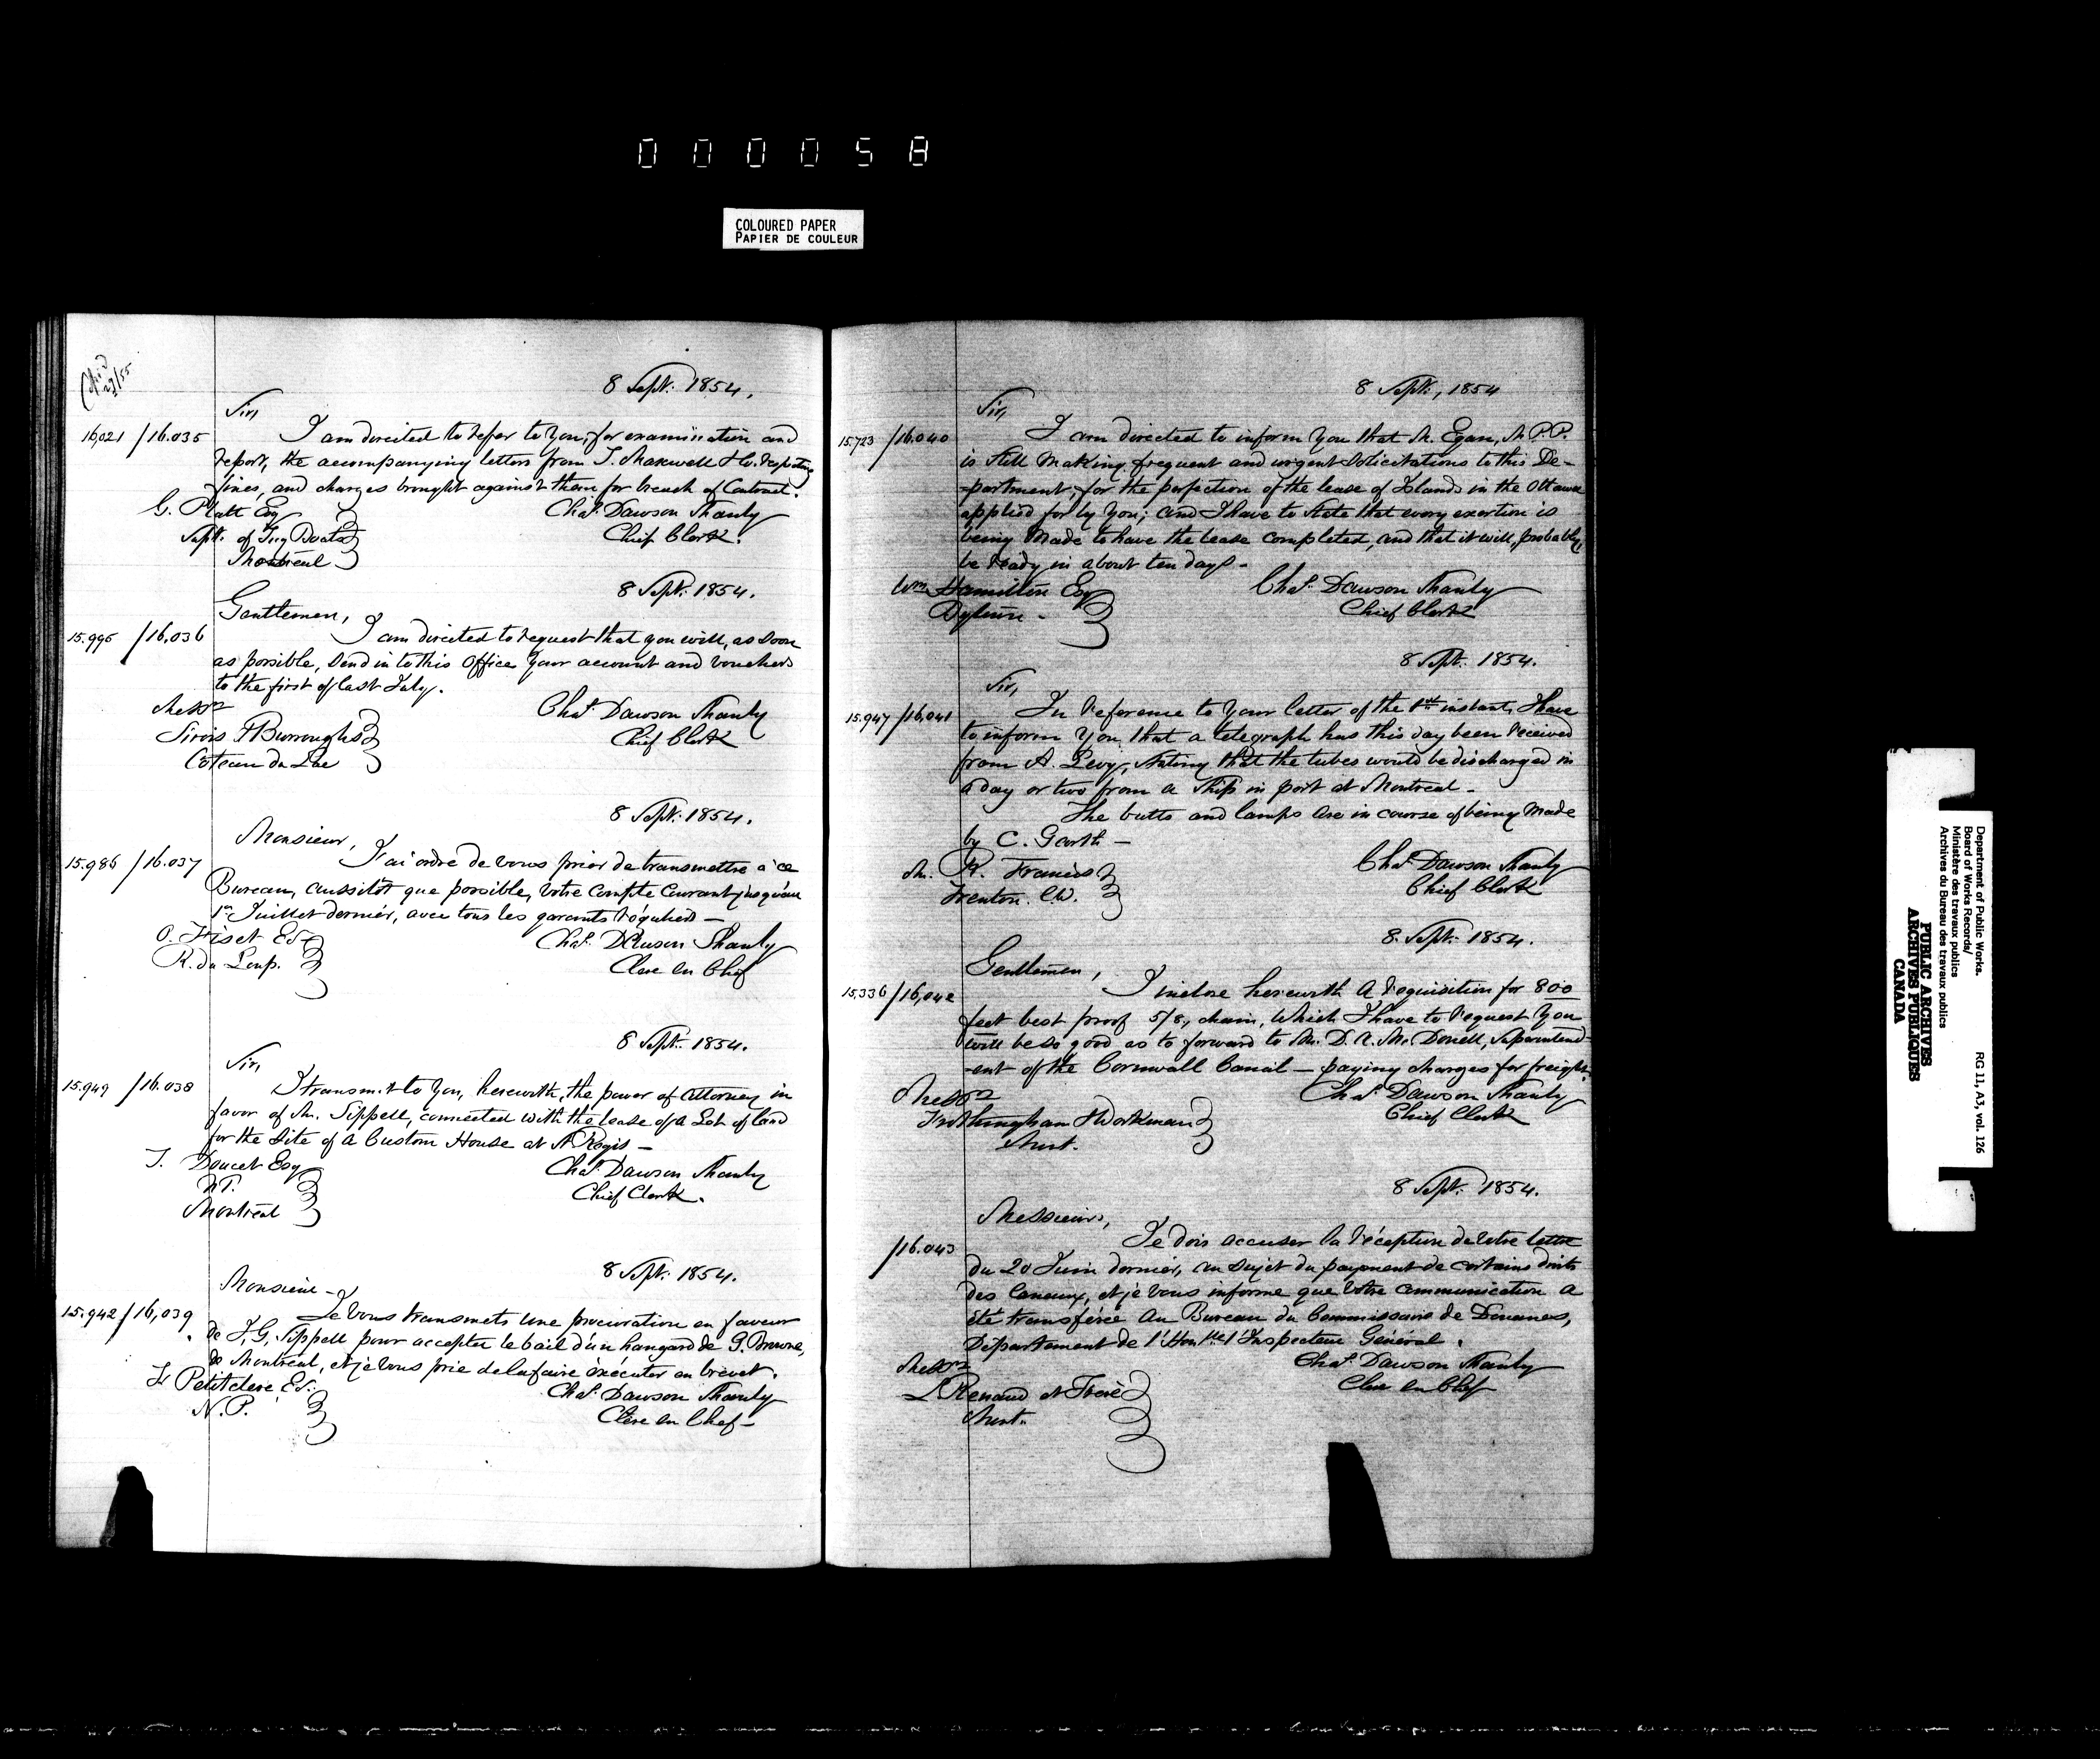 000058
COLOURED PAPER
PAPIER DE COULEUR
8 Sept. 1854.
Sir,
16,021 / 16.035 I am directed to refer to you, for examination and
report, the accompanying letters from T. Maxwell & Co. respecting
fines, and charges brought against them for breach of Contract.
G. Platt Esq Chas. Dawson Shanly
Supt. of Tug Boats Chief Clerk.
Montreal
8 Sept. 1854.
Gentlemen,
15.995 / 16.036 I am directed to request that you will, as soon
as possible, send in to this Office your account and vouchers
to the first of last July.
Messrs Chas. Dawson Shanly
Sirois & Burroughs Chief Clerk
Coteau du Lac
8 Sept. 1854.
Monsieur,
15.986 / 16.037 J'ai ordre de vous prier de transmettre à ce
Bureau, aussitôt que possible, votre compte courant jusqu'au
1er Juillet dernier, avec tous les garants réguliers —
O. Fiset Esr Chas. Dawson Shanly
R. du Loup. Clerc en Chef
8 Sept. 1854.
Sir,
15.949 / 16.038 I transmit to you, herewith, the power of Attorney in
favor of Mr. Sippell, connected with the lease of a Lot of land
for the site of a Custom House at St Regis —
T. Doucet Esq Chas. Dawson Shanly
N.P. Chief Clerk.
Montreal
8 Sept. 1854.
Monsieur -
15.942 / 16,039 Je vous transmets une procuration en faveur
de J. G. Sippell pour accepter le bail d'un hangard de G. Browne,
de Montréal, et je vous prie de la faire exécuter en brevet.
Petitclerc Esr. Chas. Dawson Shanly
N. P. Clerc en Chef —
8 Sept., 1854
Sir,
15.723 / 16.040 I am directed to inform you that M. Egan, M.P.P.
is still making frequent and urgent solicitations to this De-
-partment, for the perfection of the lease of Islands in the Ottawa
applied for by you; and I have to state that every exertion is
being made to have the lease completed, and that it will, probably,
be ready in about ten days -
Wm. Hamilton Esq Chas. Dawson Shanly
Chief Clerk
8 Sept. 1854.
Sir,
15.947 / 16,041 In reference to your letter of the 1st instant, I have
to inform you that a telegraph has this day been received
from A. Levy, stating that the tubes would be discharged in
a day or two from a ship in port at Montreal -
The butts and lamps are in course of being made
by C. Garth —
Mr. R. Francis Chas. Dawson Shanly
Trenton. C.W. Chief Clerk
8. Sept. 1854.
Gentlemen,
15,336 / 16,042 I inclose herewith a requisition for 800
feet best proof 5/8, chain, which I have to request you
will be so good as to forward to Mr. D. A. McDonell, Superintend-
-ent of the Cornwall Canal — paying charges for freight.
Messrs Chas Dawson Shanly
Frothingham & Workman Chief Clerk
Munt.
8 Sept. 1854.
Messieurs,
/16.043 Je dois accuser la réception de votre lettre
du 20 Juin dernier, au sujet du payment de certains droits
des Canaux, et je vous informe que votre communication a
été transférée au Bureau du Commissaire de Douanes,
Département de l'Honble l'Inspecteur Général.
Messrs Chas. Dawson Shanly
L Renaud et Frère Clerc en Chef
Munt.
Department of Public Works.
Board of Works Records/
Ministère des travaux publics
Archives du Bureau des travaux publics
RG 11, A3, vol. 126
PUBLIC ARCHIVES
ARCHIVES PUBLIQUES
CANADA